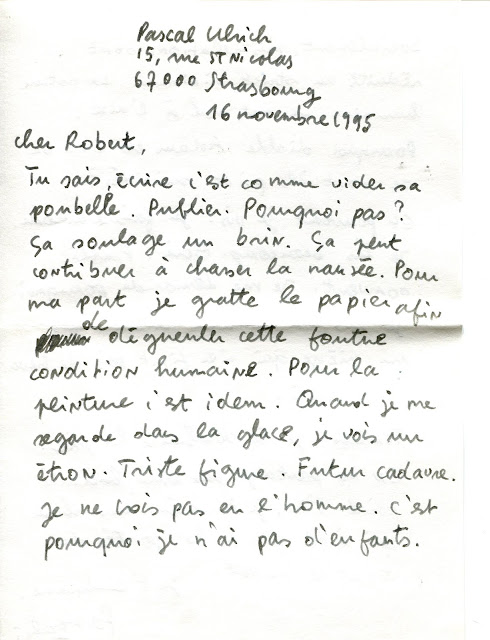 Pascal Ulrich
15, rue St Nicolas
67000 Strasbourg
16 novembre 1995
cher Robert,
Tu sais, écrire c'est comme vider sa
poubelle. Publier. Pourquoi pas ?
Ça soulage un brin. Ça peut
contribuer à chasser la nausée. Pour
ma part je gratte le papier afin
de dégueuler cette foutue
condition humaine. Pour la
peinture c'est idem. Quand je me
regarde dans la glace, je vois un
étron. Triste figure. Futur cadavre.
Je ne crois pas en l'homme. C'est
pourquoi je n'ai pas d'enfants.